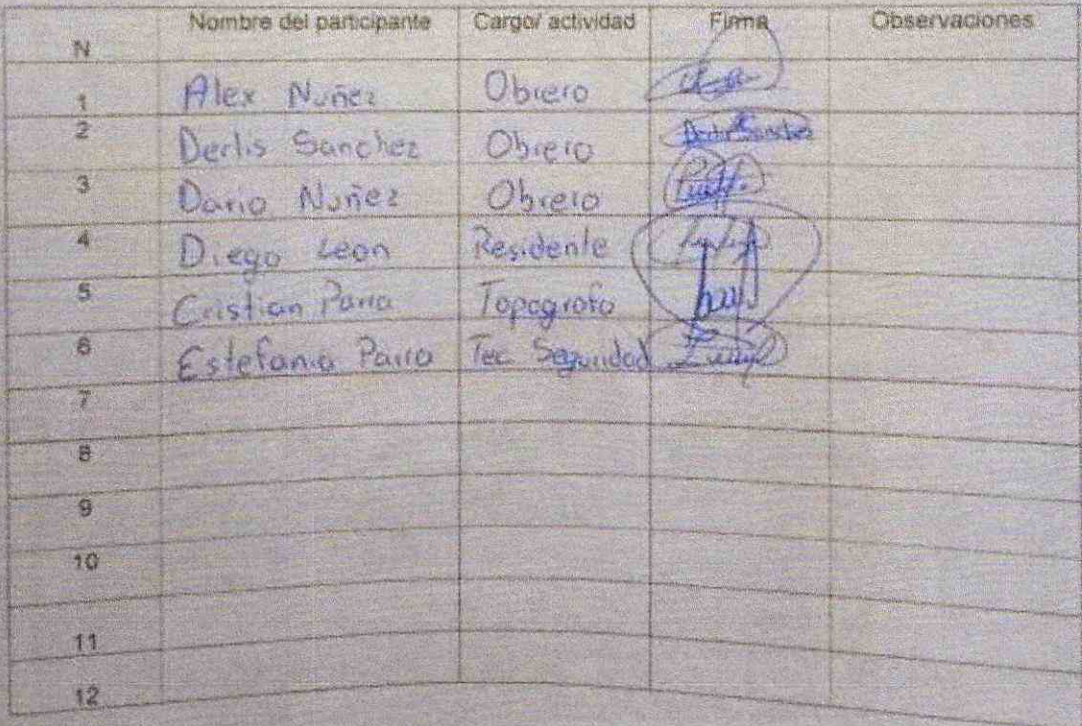 N Nombre del participante Cargo/ actividad Firma Observaciones
1 Alex Nuñez Obrero
2 Derlis Sanchez Obrero Derlis Sanchez
3 Dario Nuñez Obrero
4 Diego Leon Residente
5 Cristian Parra Topografo
6 Estefania Parra Tec Seguridad
7
8
9
10
11
12